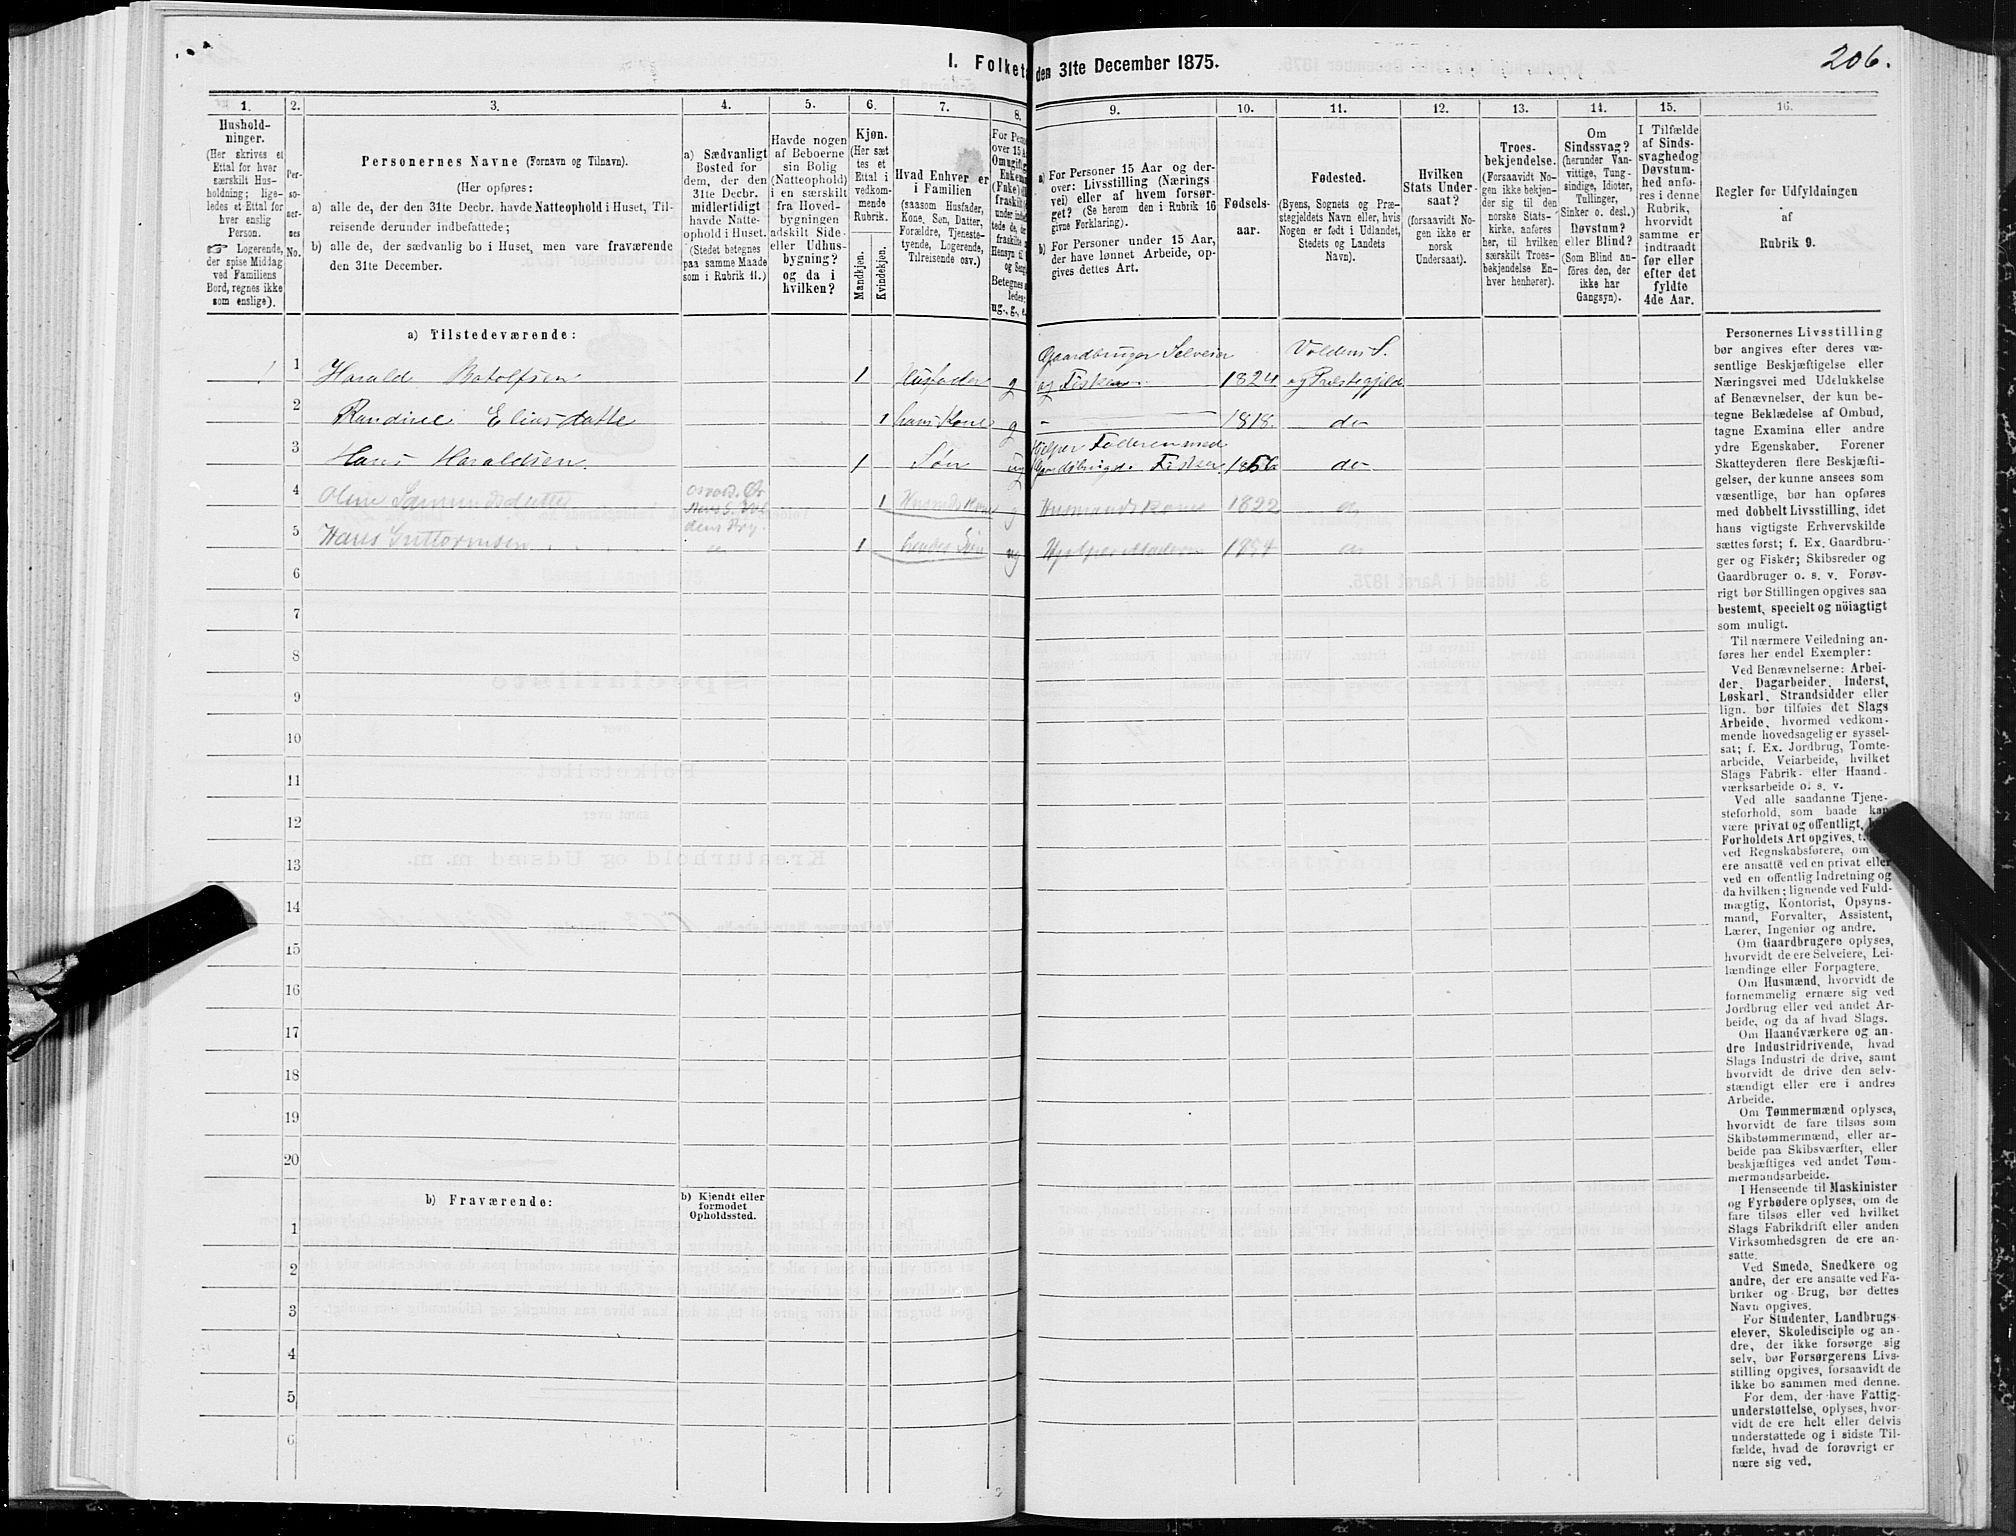 206.
1. Folketæ
den 31te December 1875.
1.
2.
3.
4.
5.
6.
7.
8.
9.
10.
11.
12.
13.
14.
15.
16.
Hushold-
ninger.
(Her skrives et
Ettal for hver
særskilt Hus-
holdning; lige-
ledes et Ettal for
hver enslig
Person.
☞ Logerende,
der spise Middag
ved Familiens
Bord, regnes ikke
som enslige).
Per-
so-
ner-
nes
No.
Personernes Navne (Fornavn og Tilnavn).
(Her opføres:
a) alle de, der den 31te Decbr. havde Natteophold i Huset, Til-
reisende derunder indbefattede;
b) alle de, der sædvanlig bo i Huset, men vare fraværende
den 31te December.
a) Sædvanligt
Bosted for
dem, der den
31te Decbr.
midlertidigt
havde Natte-
ophold i Huset.
(Stedet betegnes
paa samme Maade
som i Rubrik 11.)
Havde nogen
af Beboerne
sin Bolig
(Natteophold)
i en særskilt
fra Hoved-
bygningen
adskilt Side-
eller Udhus-
bygning?
og da i
hvilken?
Kjøn.
(Her sæt
tes et
Ettal i
vedkom-
mende
Rubrik.
Mandkjøn.
Kvindekjøn.
Hvad Enhver er
i Familien
(saasom Husfader,
Kone, Søn, Datter,
Forældre, Tjeneste-
tyende, Logerende,
Tilreisende osv.)
For Perso
over 15 A
Om ugift
Enkem
(Enke)
fraskilt
under indbe
tede de,
fraskilte
Hensyn til
og Seng
Betegnes
ledes:
ug., g., e.
a) For Personer 15 Aar og der-
over: Livsstilling (Nærings
vei) eller af hvem forsør-
get? (Se herom den i Rubrik 16
givne Forklaring).
b) For Personer under 15 Aar,
der have lønnet Arbeide, op-
gives dettes Art.
Fødsels-
aar.
Fødested.
(Byens, Sognets og Præ-
stegjeldets Navn eller, hvis
Nogen er født i Udlandet,
Stedets og Landets
Navn).
Hvilken
Stats Under-
saat?
(forsaavidt No-
gen ikke er
norsk
Undersaat).
Troes-
bekjendelse.
(Forsaavidt No-
gen ikke bekjen-
der sig til den
norske Stats-
kirke, anføres
her, til hvilken
særskilt Troes-
bekjendelse En-
hver henhører).
Om
Sindssvag?
(herunder Van-
vittige, Tung-
sindige, Idioter,
Tullinger,
Sinker o. desl.)
Døvstum?
eller Blind?
(Som Blind an-
føres den, der
ikke har
Gangsyn).
I Tilfælde
af Sinds-
svaghedog
Døvstum-
hed anfø-
res i denne
Rubrik,
hvorvidt
samme er
indtraadt
før eller
efter det
fyldte
4de Aar.
Regler for Udfyldningen
af
Rubrik 9.
a) Tilstedeværende:
1 1 Harald Botolfsen 1 Husfader g Gaardbruger Selveier og Fisker 1824 Voldens S. og Præstegjeld
2 Randine Eliasdatte 1 hans Kone g - 1818. do
3 Hans Haraldsen. 1 Søn ug Hjelper Faderen med Gaardsbrug og Fisker. 1856 do
4 Oline Samundsdatter 1 Husmands Kone g Husmands Kone 1822 do
5 Hans Guttormsen do 1 hendes Søn ug Hjelper Moderen 1854 do
6
7
8
9
10
11
12
13
14
15
16
17
18
19
20
b) Fraværende:
b) Kjendt eller
formodet
Opholdssted.
1
2
3
4
5
6
Personernes Livsstilling
bør angives efter deres væ-
sentlige Beskjæftigelse eller
Næringsvei med Udelukkelse
af Benævnelser, der kun be-
tegne Beklædelse af Ombud,
tagne Examina eller andre
ydre Egenskaber. Forener
Skatteyderen flere Beskjæfti-
gelser, der kunne ansees som
væsentlige, bør han opføres
med dobbelt Livsstilling, idet
hans vigtigste Erhvervskilde
sættes først; f. Ex. Gaardbru-
ger og Fisker; Skibsreder og
Gaardbruger o. s. v. Forøv-
rigt bør Stillingen opgives saa
bestemt, specielt og nöiagtigt
som muligt.
Til nærmere Veiledning an-
føres her endel Exempler:
Ved Benævnelserne: Arbei-
der, Dagarbeider, Inderst,
Løskarl, Strandsidder eller
lign. bør tilføies det Slags
Arbeide, hvormed vedkom-
mende hovedsagelig er syssel-
sat; f. Ex. Jordbrug, Tomte-
arbeide, Veiarbeide, hvilket
Slags Fabrik- eller Haand-
værksarbeide o. s. v.
Ved alle saadanne Tjene-
steforhold, som baade kan
være privat og offentligt,
Forholdets Art opgives,
ved Regnskabsførere, om
ere ansatte ved en privat eller
ved en offentlig Indretning og
da hvilken; lignende ved Fuld-
mægtig, Kontorist, Opsyns-
mand, Forvalter, Assistent,
Lærer, Ingeniør og andre.
Om Gaardbrugere oplyses,
hvorvidt de ere Selveiere, Lei-
lændinge eller Forpagtere.
Om Husmænd, hvorvidt de
fornemmelig ernære sig ved
Jordbrug eller ved andet Ar-
beide, og da af hvad Slags.
Om Haandværkere og an-
dre Industridrivende, hvad
Slags Industri de drive, samt
hvorvidt de drive den selv-
stændigt eller ere i andres
Arbeide.
Om Tømmermænd oplyses,
hvorvidt de fare tilsøs som
Skibstømmermænd, eller ar-
beide paa Skibsværfter, eller
beskjæftiges ved andet Tøm-
mermandsarbeide.
I Henseende til Maskinister
og Fyrbødere oplyses, om de
fare tilsøs eller ved hvilket
Slags Fabrikdrift eller anden
Virksomhedsgren de ere an-
satte.
Ved Smede, Snedkere og
andre, der ere ansatte ved Fa-
briker og Brug, bør dettes
Navn opgives.
For Studenter, Landbrugs-
elever, Skoledisciple og an-
dre, der ikke forsørge sig
selv, bør Forsørgerens Livs-
stilling opgives, forsaavidt de
ikke bo sammen med denne.
For dem, der have Fattig-
understøttelse, oplyses, hvor-
vidt de ere helt eller delvis
understøttede og i sidste Til-
fælde, hvad de forøvrigt er
nære sig ved.